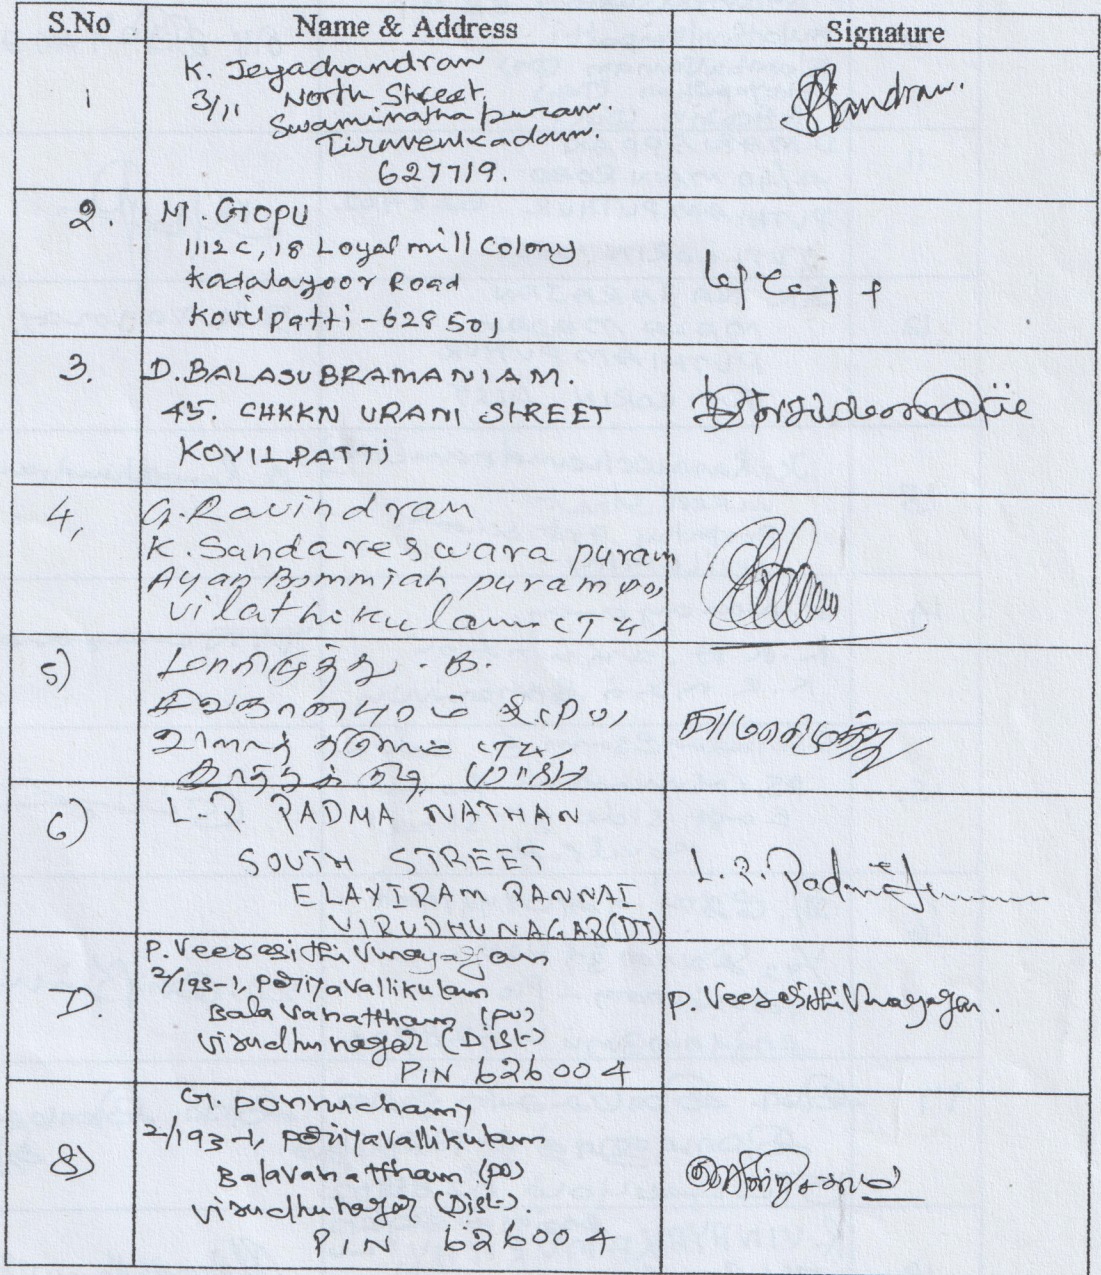 S.No Name & Address Signature
1 K. Jeyachandran
3/11 North Street,
Swaminatha puram.
Tiruvenkadam.
627719.
2. M. Gopu
1112 C, 18 Loyal mill Colony
Kadalayoor Road
Kovilpatti - 628501
3. D. BALASUBRAMANIAM.
45. CHKKN URANI STREET
KOVILPATTI
4, G. Ravindran
K. Sandareswara puram
Ayan Bommiah puram (po)
Vilathikulam (TK)
5) மாரிமுத்து . B.
(po)
(TK)
6) L.R. PADMA NATHAN
SOUTH STREET
ELAYIRAM PANNAI
VIRUDHUNAGAR (DT)
L. R.
7). P. Veerasithi Vinayagam
2/193-1, Periyavallikulam
Balavanattham (po)
Virudhunagar (Dist)
PIN 626004
P. Veerasithi Vinayagam.
8) G. Ponnuchamy
2/193-1, Periyavallikulam
Balavanattham (po)
Virudhunagar (Dist).
PIN 626004